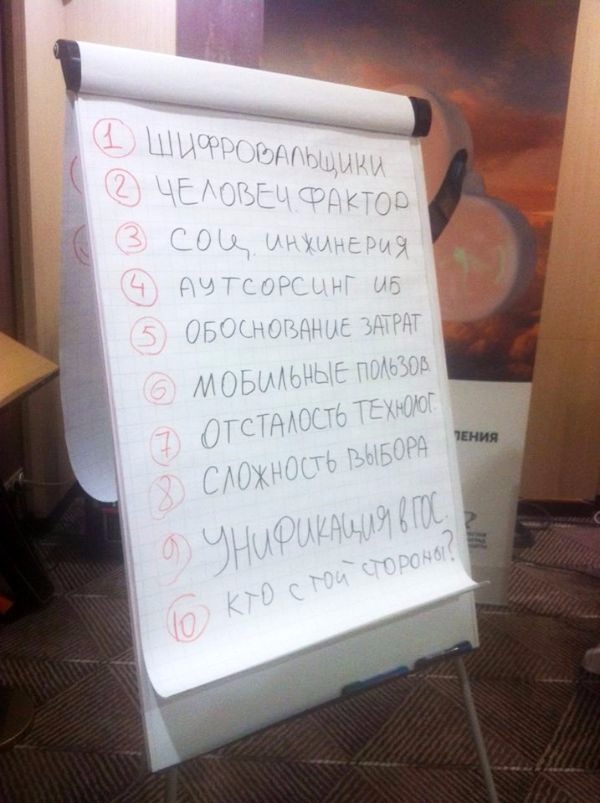 1 ШИФРОВАЛЬЩИКИ
2 ЧЕЛОВЕЧ. ФАКТОР
3 СОЦ. ИНЖИНЕРИЯ
4 АУТСОРСИНГ ИБ
5 ОБОСНОВАНИЕ ЗАТРАТ
6 МОБИЛЬНЫЕ ПОЛЬЗОВ
7 ОТСТАЛОСТЬ ТЕХНОЛОГ.
8 СЛОЖНОСТЬ ВЫБОРА
9 УНИФИКАЦИЯ В ГОС.
10 КТО С ТОЙ СТОРОНЫ?
ЛЕНИЯ